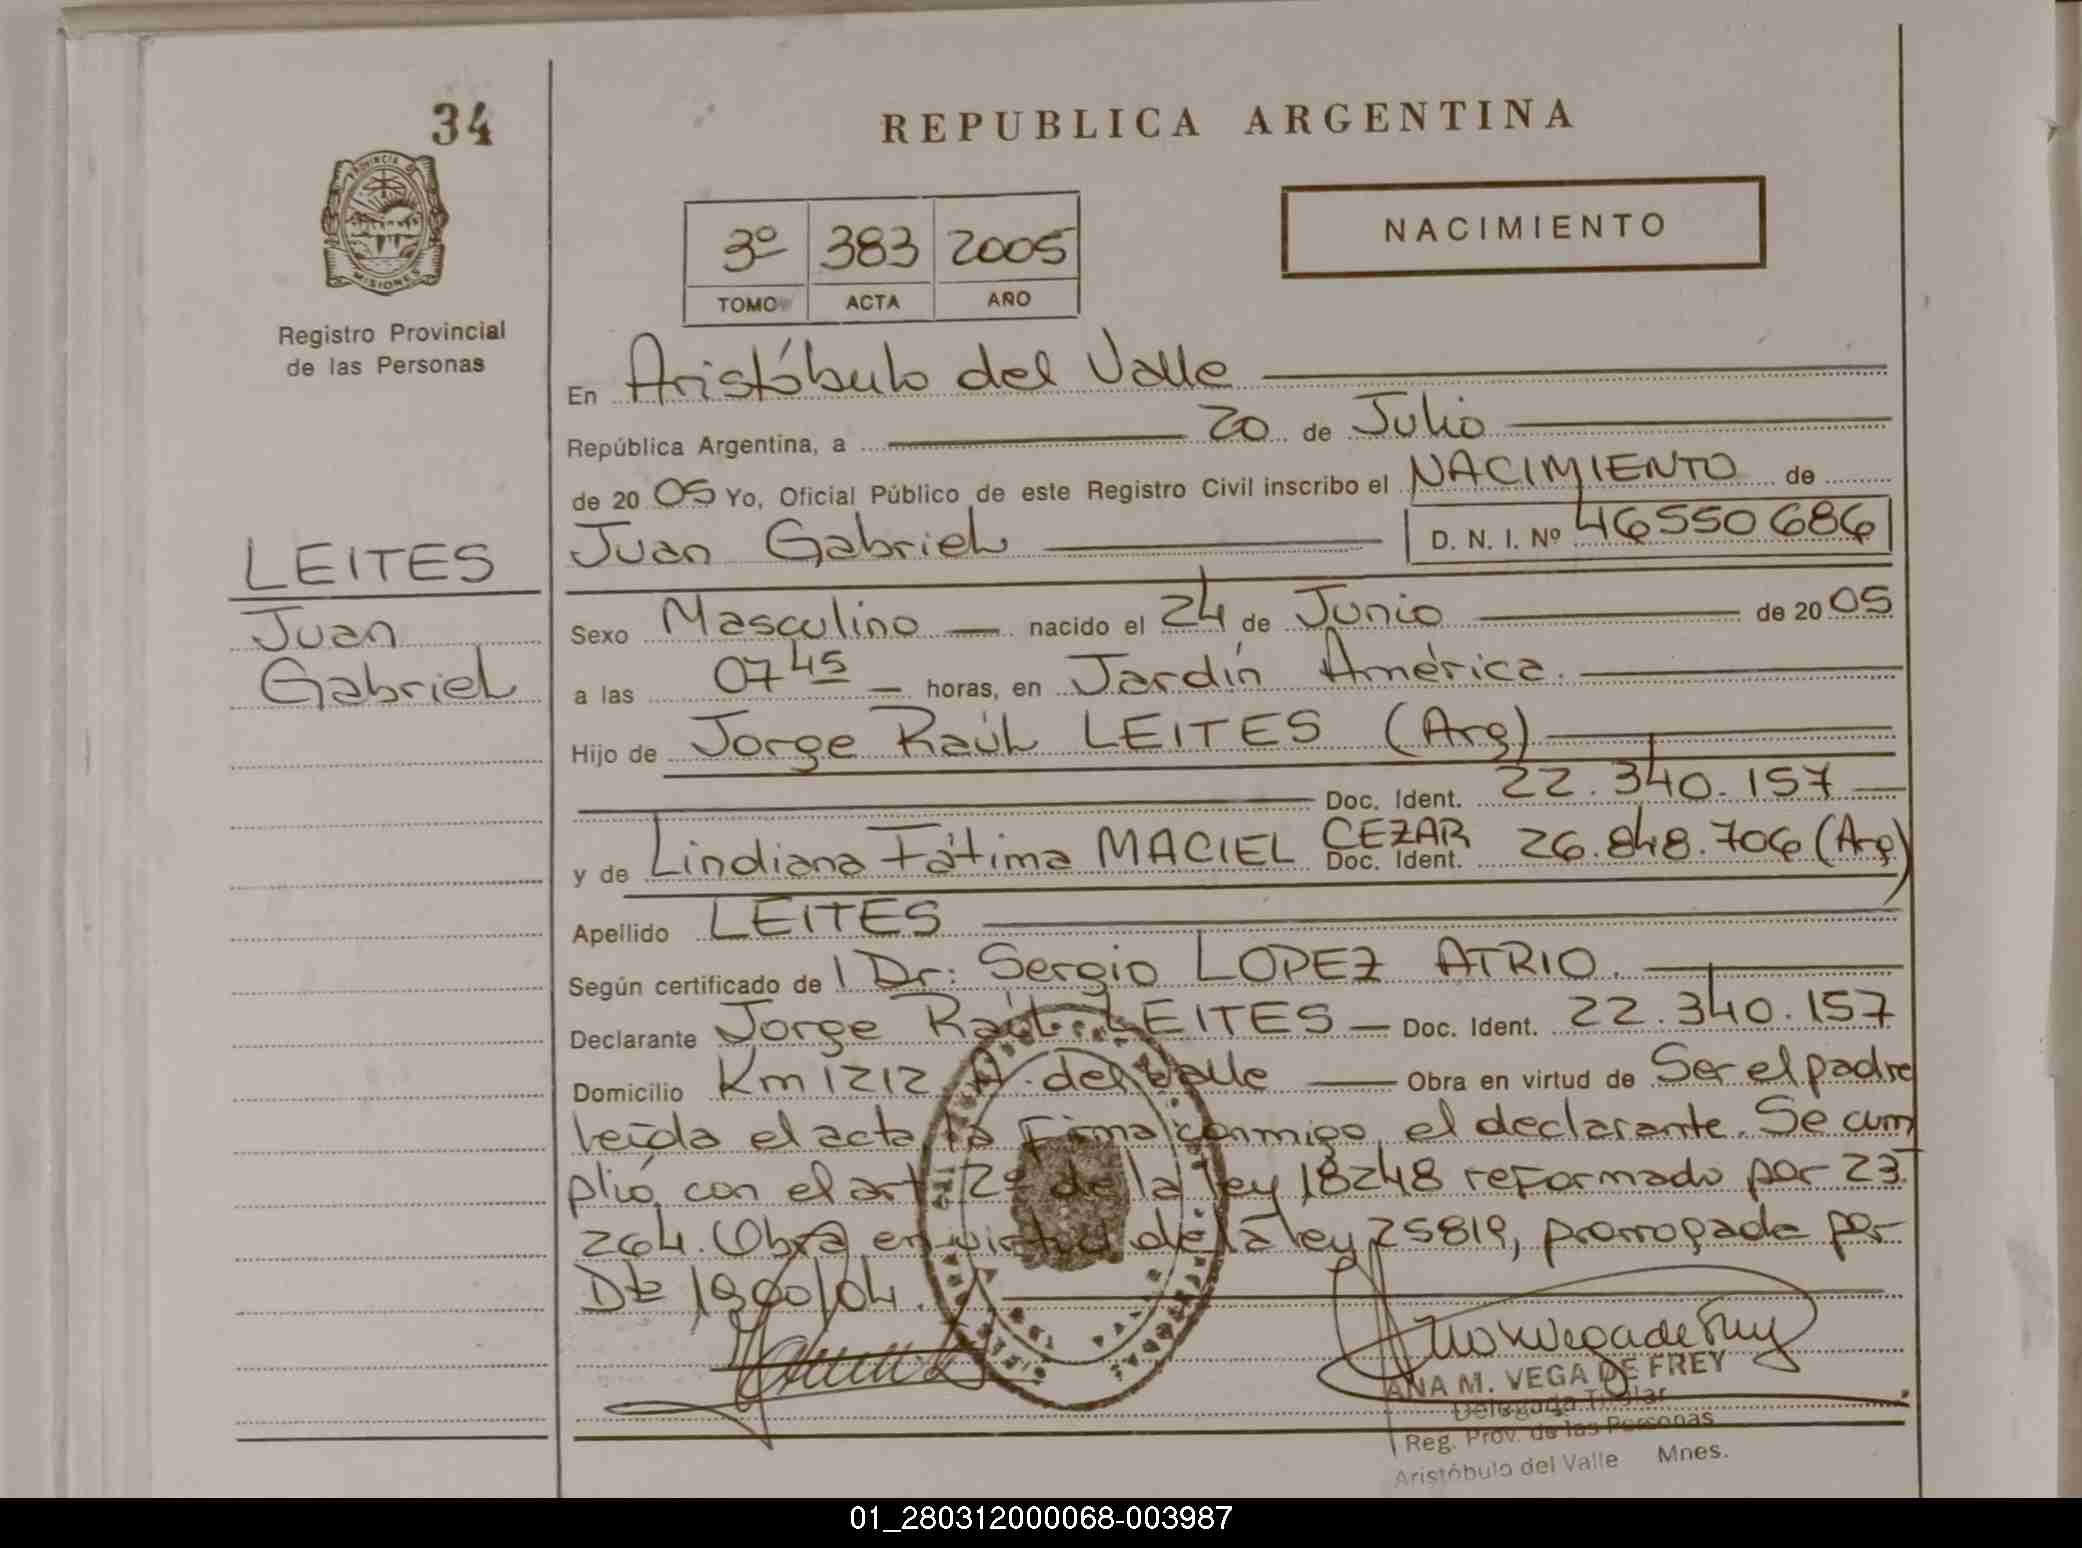 34
REPUBLICA ARGENTINA
PROVINCIA DE
MISIONES
3º 383 2005
TOMO ACTA AÑO
NACIMIENTO
Registro Provincial
de las Personas
En Aristóbulo del Valle
República Argentina, a 20 de Julio
de 20 05 Yo, Oficial Público de este Registro Civil inscribo el NACIMIENTO de
Juan Gabriel D. N. I. Nº 46550686
LEITES
Juan
Gabriel
Sexo Masculino nacido el 24 de Junio de 20 05
a las 07 45 horas, en Jardín América.
Hijo de Jorge Raúl LEITES (Arg)
Doc. Ident. 22.340.157
y de Lindiana Fátima MACIEL CEZAR Doc. Ident. 26.848.706 (Arg)
Apellido LEITES
Según certificado de l Dr: Sergio LOPEZ ATRIO.
Declarante Jorge Raúl LEITES Doc. Ident. 22.340.157
Domicilio Km 1212 A. del Valle Obra en virtud de Ser el padre
leída el acta la firma conmigo, el declarante. Se cum
plió con el art. 2º de la ley 18248 reformado por 23
264. Obra en virtud de la ley 25819, prorrogada por
Dto 1900/04.
ANA M. VEGA DE FREY
Delegada Titular
Reg. Prov. de las Personas
Aristóbulo del Valle Mnes.
01_280312000068-003987